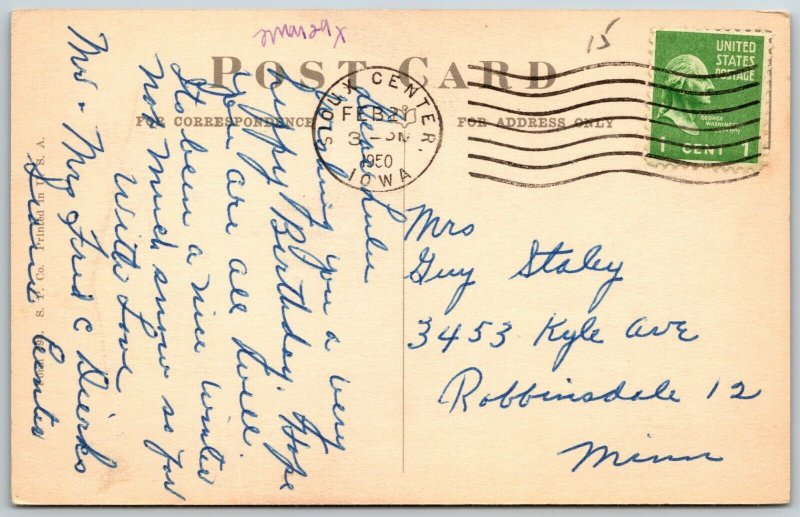 POST CARD
FOR CORRESPONDENCE
FOR ADDRESS ONLY
UNITED
STATES
POSTAGE
GEORGE
WASHINGTON
1 CENT 1
SIOUX CENTER,
FEB 21
3 - PM
1950
IOWA
15
Dear Lulu
Wishing you a very
happy Birthday. Hope
you are all well.
Its been a nice winter
not much snow so far
With Love
Mr - Mrs Fred C Dierks
Center
Mrs
Guy Staley
3453 Kyle Ave
Robbinsdale 12
Minn
S. P. Co. Printed in U. S. A.